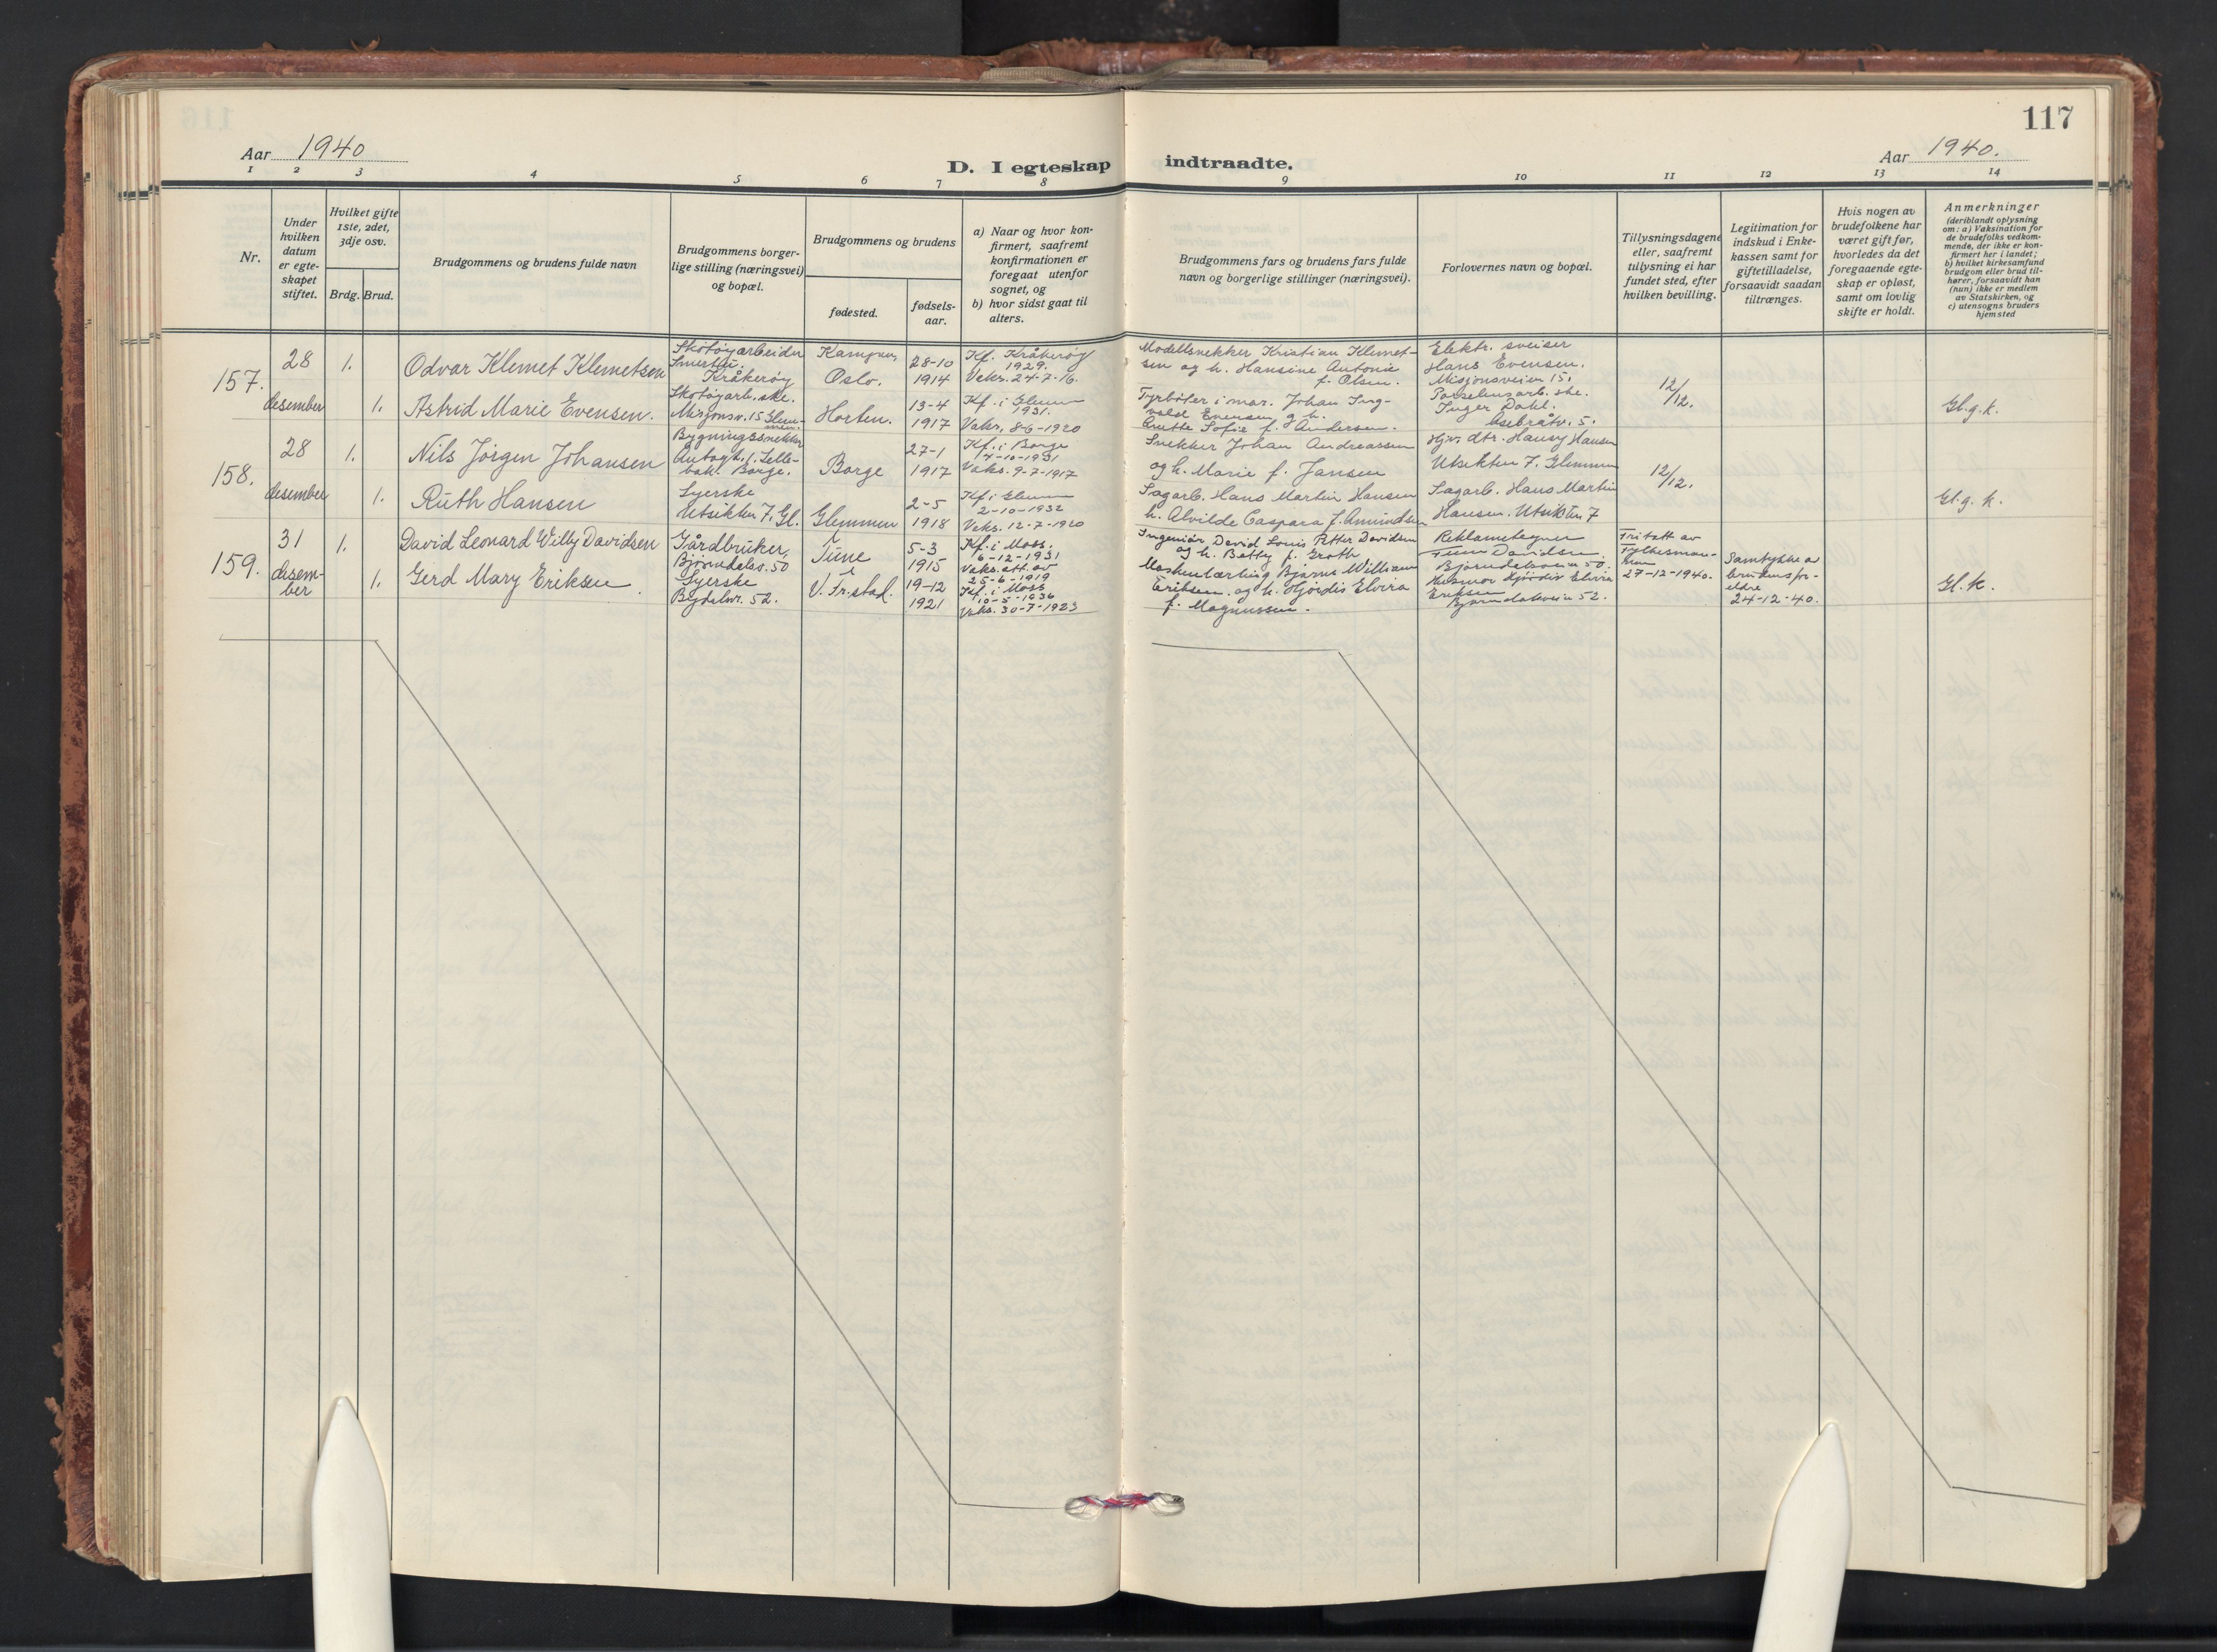 117
Aar 1940
D. I egteskap indtraadte.
Aar 1940.
1 2 3 4 5 6 7 8 9 10 11 12 13 14
Nr.
Under
hvilken
datum
er egte-
skapet
stiftet.
Hvilket gifte
1ste, 2det,
3dje osv.
Brdg. Brud.
Brudgommens og brudens fulde navn
Brudgommens borger-
lige stilling (næringsvei)
og bopæl.
Brudgommens og brudens
fødested.
fødsels-
aar.
a) Naar og hvor kon-
firmert, saafremt
konfirmationen er
foregaat utenfor
sognet, og
b) hvor sidst gaat til
alters.
Brudgommens fars og brudens fars fulde
navn og borgerlige stillinger (næringsvei).
Forlovernes navn og bopæl.
Tillysningsdagene
eller, saafremt
tillysning ei har
fundet sted, efter
hvilken bevilling.
Legitimation for
indskud i Enke-
kassen samt for
giftetilladelse,
forsaavidt saadan
tiltrænges.
Hvis nogen av
brudefolkene har
været gift før,
hvorledes da det
foregaaende egte-
skap er opløst,
samt om lovlig
skifte er holdt.
Anmerkninger
(deriblandt oplysning
om: a) Vaksination for
de brudefolks vedkom-
mende, der ikke er kon-
firmert her i landet;
b) hvilket kirkesamfund
brudgom eller brud til-
hører, forsaavidt han
(hun) ikke er medlem
av Statskirken, og
c) utensogns bruders
hjemsted
157.
28
desember
1.
Odvar Klemet Klemetsen
Skotøyarbeider
Kråkerøy
Kampen,
Oslo.
28-10
1914
Kf. Kråkerøy
1929.
Vaks. 24-7-16.
Modellsnekker Kristian Klemet-
sen og h. Hansine Antonie
f. Olsen.
Elektr. sveiser
Hans Evensen.
Misjonsveien 15.
12/12.
1.
Astrid Marie Evensen.
Skotøyarb.ske.
Misjonsv. 15 Glem-
men.
Horten.
13-4
1917
Kf. i Glemmen
1931.
Vaks. 8-6-1920
Fyrbøter i mar. Johan Ing-
vald Evensen og h.
Anette Sofie f. Andersen.
Porselensarb.ske.
Inger Dahl.
Gl.g.k.
158.
28
desember
1.
Nils Jörgen Johansen
Bygningssnekker
Borge.
Borge
27-1
1917
Kf. i Borge
4-10-1931
Vaks. 9-7-1917
Snekker Johan Andreassen
og h. Marie f. Jansen
Hjv. dtr. Hansy Hansen
Utsikten 7. Glemmen
12/12.
1.
Ruth Hansen
Syerske
Utsikten 7, Gl.
Glemmen
2-5
1918
Kf. i Glemmen
2-10-1932
Vaks. 12-7-1920
Sagarb. Hans Martin Hansen
h. Alvilde Caspara f. Amundsen
Sagarb. Hans Martin
Hansen. Utsikten 7
Gl.g.k.
159.
31
desem-
ber
1.
David Leonard Willy Davidsen
Gårdbruker,
Bjørndalsv. 50
Tune
5-3
1915
Kf. i Moss.
6-12-1931
Vaks. att. av
25-6-1919
Ingeniør David Louis Petter Davidsen
og h. Betty f. Groth
Reklametegner
Finn Davidsen.
Bjørndalsveien 50.
Fritatt av
Fylkesman-
nen
27-12-1940.
Samtykke av
brudens for-
eldre
24-12-40.
1.
Gerd Mary Eriksen
Syerske
52.
V. Fr.stad.
19-12
1921
Kf. i Moss
10-5-1936
Vaks. 30-7-1923
Maskinlærling Bjarne William
Eriksen. og h. Hjördis Elvira
f. Magnussen.
Husmor Hjördis Elvira
Eriksen
Bjørndalsveien 52.
Gl.k.